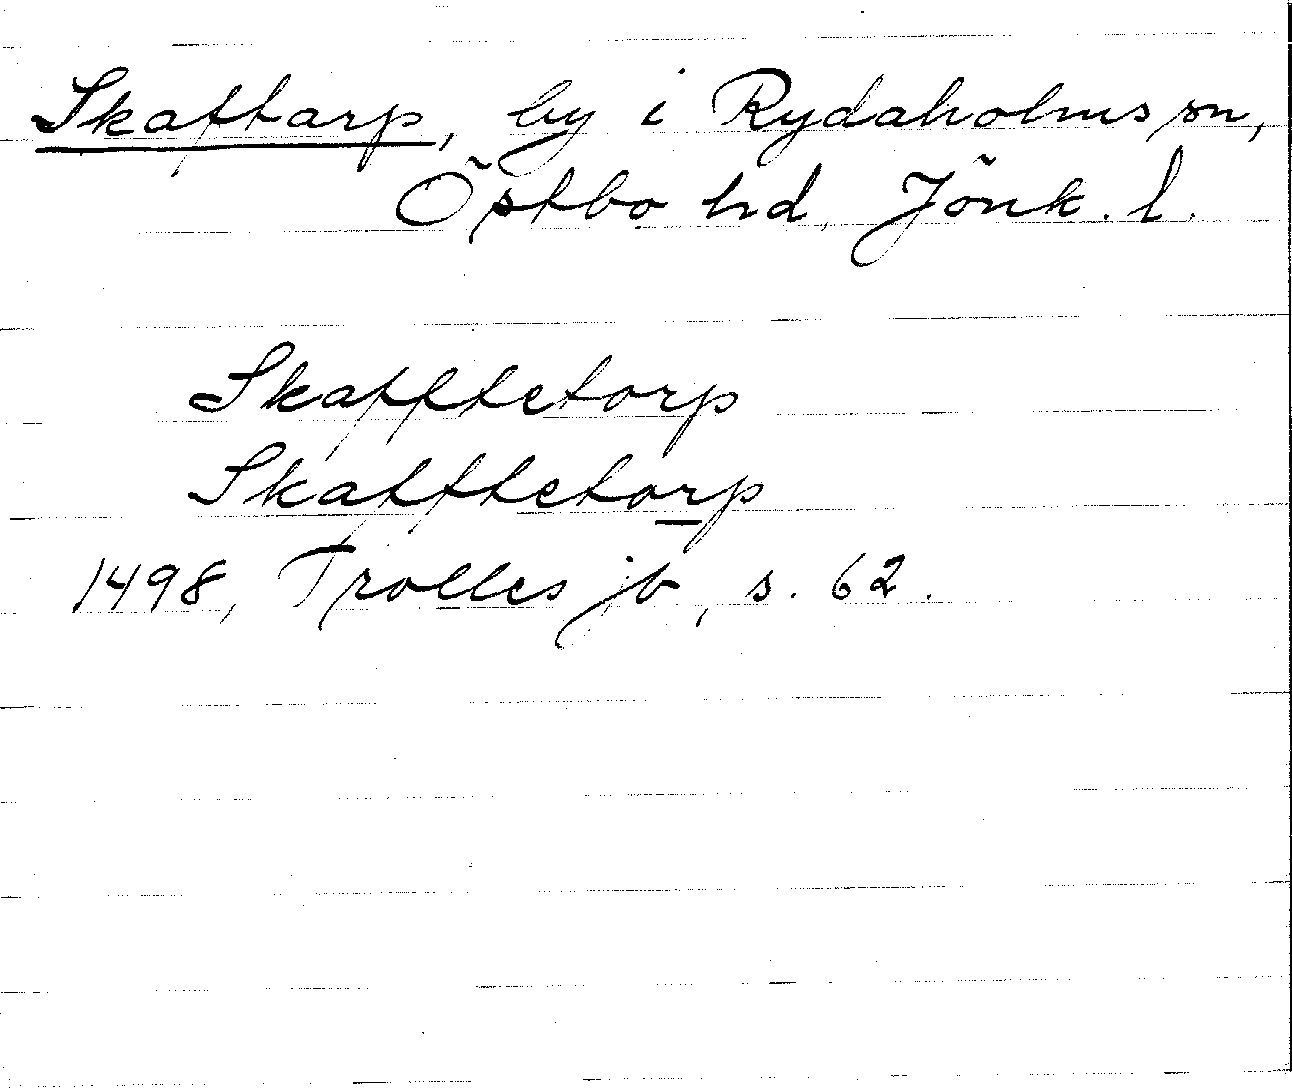 Skaftarp, by i Rydaholms sn,
Östbo hd, Jönk. l.
Skafftetorp
Skafftetorp
1498, Trolles jb, s. 62.